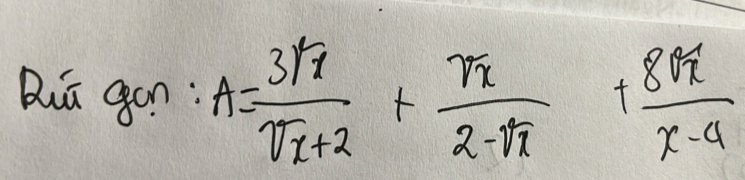 Rút gọn : A = 3√x/(√x+2) + √x/(2-√x) + 8√x/(x-4)